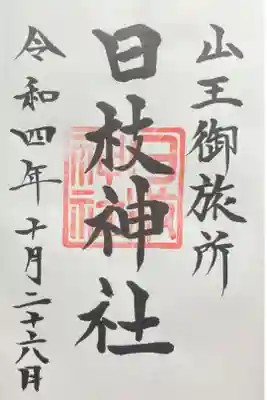 山王御旅所
日枝神社
令和四年十月二十六日